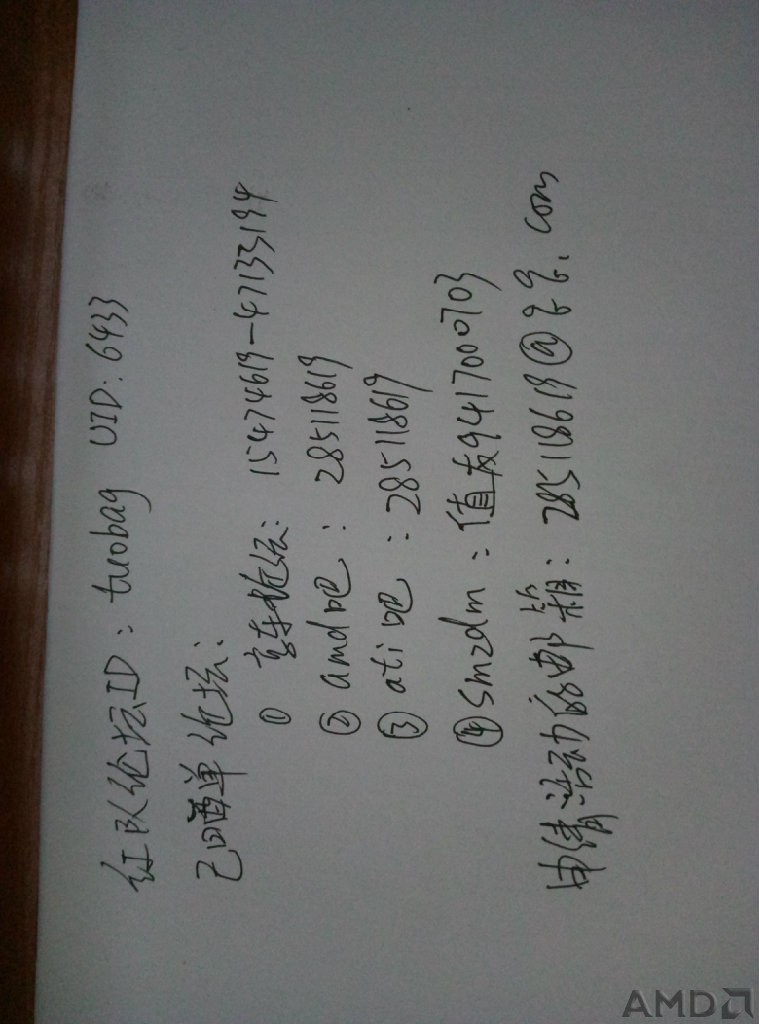 红队论坛ID：tuobag UID：6433
已晒单论坛：
① 京东论坛：15474619-47133194
② amd吧：285118619
③ ati吧：285118619
④ smzdm：值友9417000703
申请活动的邮箱：285118619@qq.com
AMD